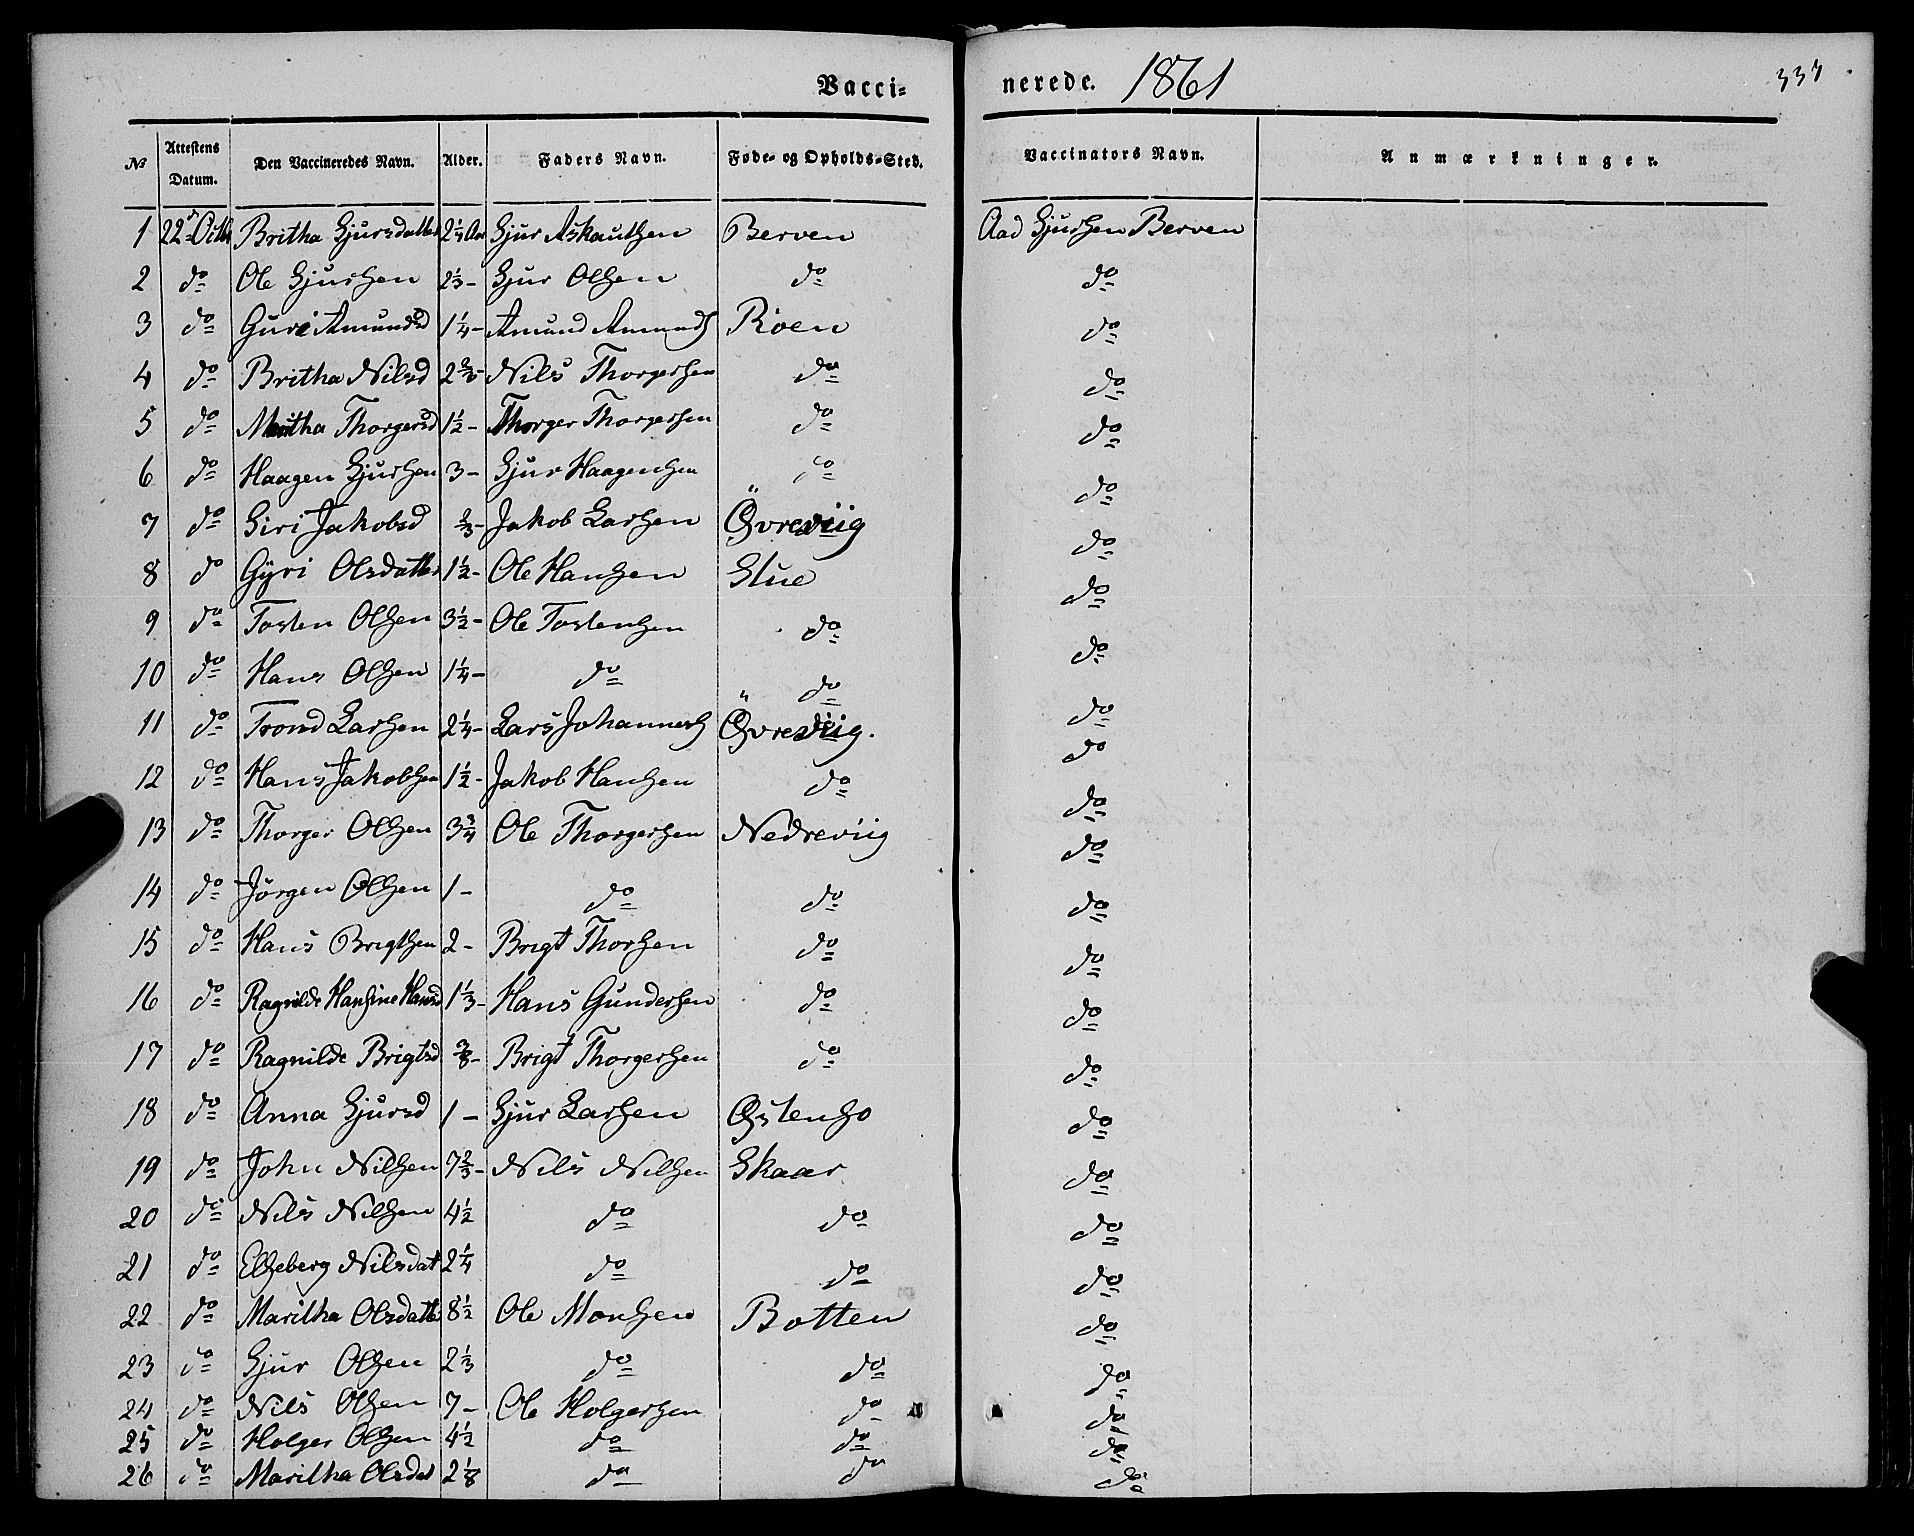 Vacci= nerede. 1861 333
№ Attestens Datum. Den Vaccineredes Navn. Alder. Faders Navn. Føde- og Opholds-Sted. Vaccinators Navn. Anmærkninger.
1 22de Octbr Britha Sjursdatter 2 1/4 Aar Sjur Askautsen Berven Aad Sjursen Berven
2 do Ole Sjursen 2 1/3 - Sjur Olsen do do
3 do Guri Amundsd 1 1/4 - Amund Amunds Røen do
4 do Britha Nilsd 2 2/3 - Nils Thorgersen do do
5 do Thorgersd 1 1/2 - Thorger Thorgersen do do
6 do Haagen Sjursen 3 - Sjur Haagensen do do
7 do Siri Jakobsd 2/3 - Jakob Larsen Øvreviig do
8 do Gyri Olsdatter 1 1/2 - Ole Hansen Stue do
9 do Tosten Olsen 3 1/2 - Ole Tostensen do do
10 do Hans Olsen 1 1/4 - do do do
11 do Trond Larsen 2 1/4 - Lars Johannes Øvreviig. do
12 do Hans Jakobsen 1 1/2 - Jakob Hansen do do
13 do Thorger Olsen 3 3/4 Ole Thorgersen Nedreviig do
14 do Jörgen Olsen 1 - do do do
15 do Hans Brigtsen 2 - Brigt Thorsen do do
16 do Ragnilde Hansine Hansd 1 1/3 - Hans Gundersen do do
17 do Ragnilde Brigtsd 3/8 - Brigt Thorgersen do do
18 do Anna Sjursd 1 - Sjur Larsen Østensø do
19 do John Nilsen 7 2/3 - Nils Nilsen Skaar do
20 do Nils Nilsen 4 1/2 do do do
21 do Elseberg Nilsdat 2 1/4 do do do
22 do Maritha Olsdatter 8 1/2 Ole Monsen Botten do
23 do Sjur Olsen 2 1/3 do do do
24 do Nils Olsen 7 - Ole Holgersen do do
25 do Holger Olsen 4 1/2 do do do
26 do Maritha Olsdat 2 1/8 do do do